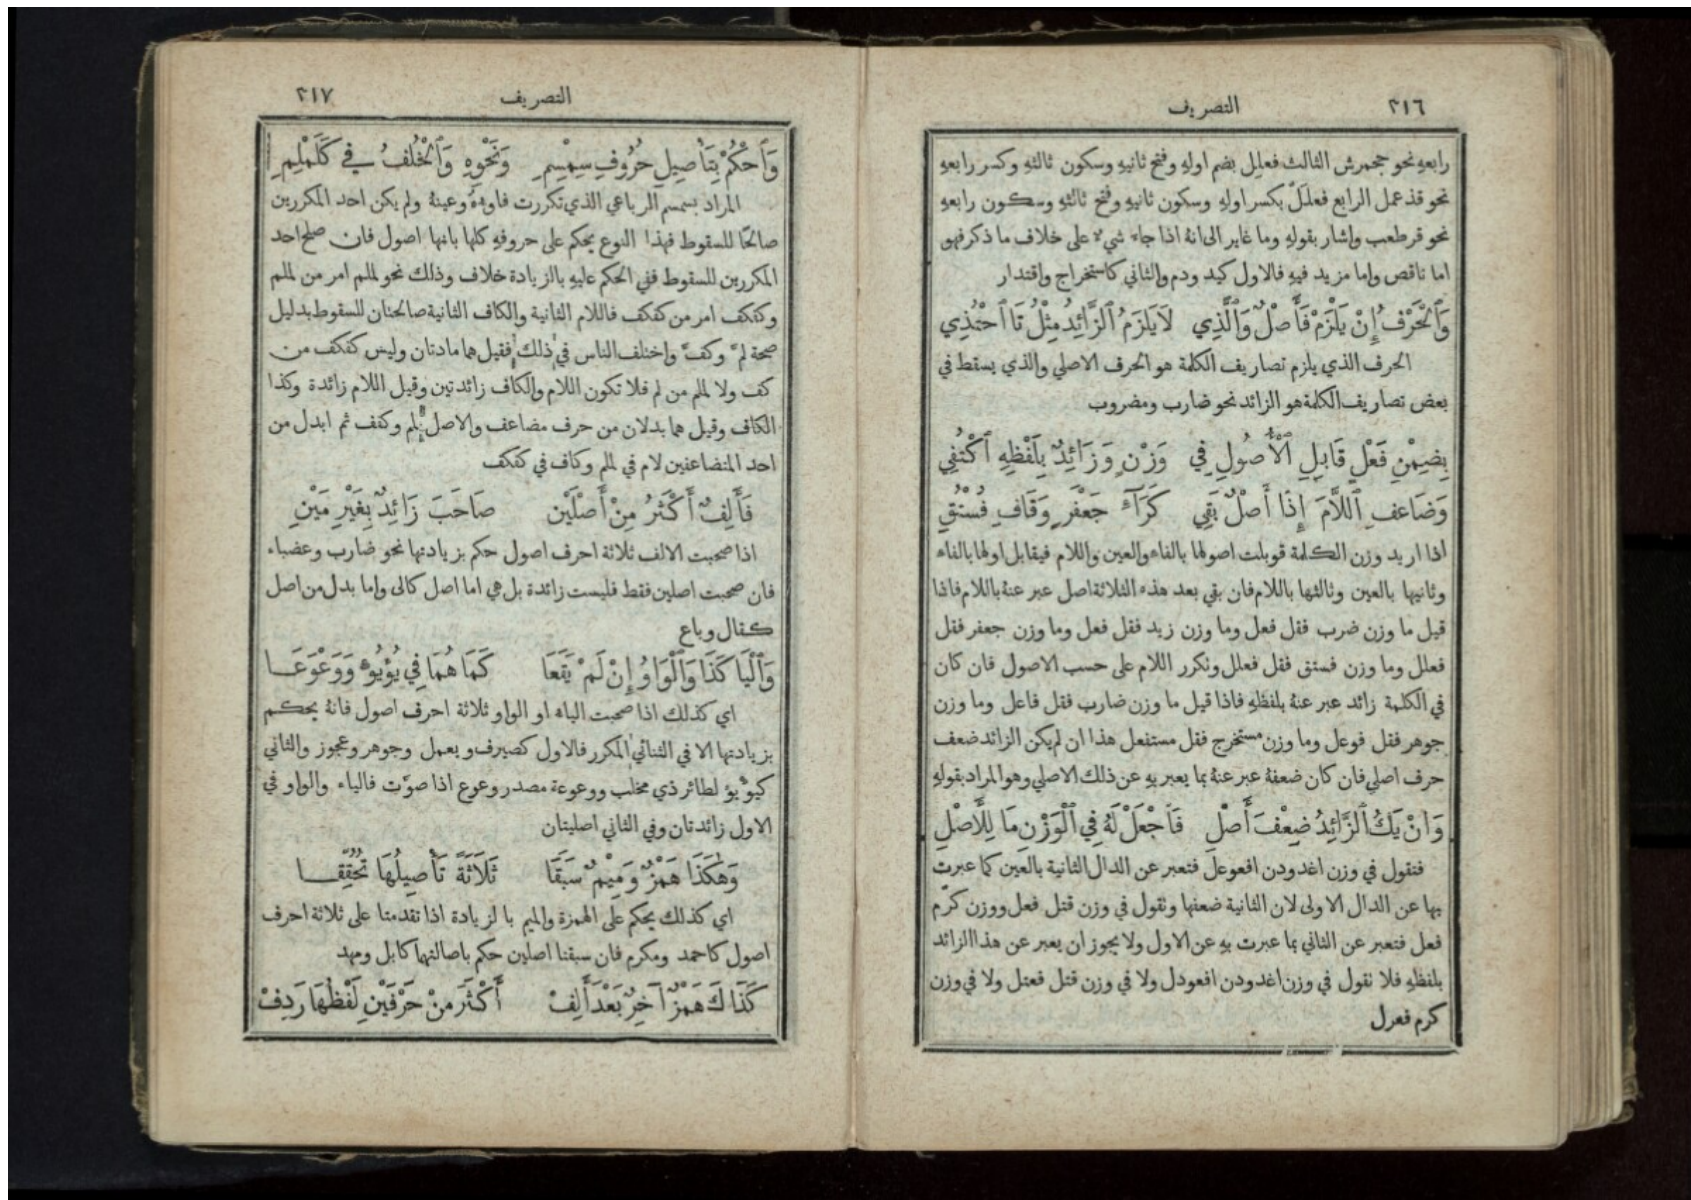 التصريف ٢١٦
رابعهِ نحو جحمرش الثالث فعلِّل بضم اولهِ وفتح ثانيهِ وسكون ثالثهِ وكسر رابعهِ
نحو قذعمل الرابع فعلَلّ بكسر اولهِ وسكون ثانيهِ وفتح ثالثهِ وسكون رابعهِ
نحو قرطعب واشار بقولهِ وما غاير الى انهُ اذا جاء شيء على خلاف ما ذكر فهو
اما ناقص واما مزيد فيهِ فالاول كيد ودم والثاني كاستخراج واقتدار
وَٱلْحَرْفُ إِنْ يَلْزَمْ فَأَصْلٌ وَٱلَّذِي لَا يَلْزَمُ ٱلزَّائِدُ مِثْلُ تَا ٱحْتُذِي
الحرف الذي يلزم تصاريف الكلمة هو الحرف الاصلي والذي يسقط في
بعض تصاريف الكلمة هو الزائد نحو ضارب ومضروب
بِضِمْنِ فَعْلٍ قَابِلِ ٱلْأُصُولَ فِي وَزْنٍ وَزَائِدٌ بِلَفْظِهِ ٱكْتُفِي
وَضَاعِفِ ٱللَّامَ إِذَا أَصْلٌ بَقِي كَرَآءِ جَعْفَرٍ وَقَافِ فُسْتُقِ
اذا اريد وزن الكلمة قوبلت اصولها بالفاء والعين واللام فيقابل اولها بالفاء
وثانيها بالعين وثالثها باللام فان بقي بعد هذه الثلاثة اصل عبر عنهُ باللام فاذا
قيل ما وزن ضرب فقل فعل وما وزن زيد فقل فعل وما وزن جعفر فقل
فعلل وما وزن فستق فقل فعلل وتكرر اللام على حسب الاصول فان كان
في الكلمة زائد عبر عنهُ بلفظهِ فاذا قيل ما وزن ضارب فقل فاعل وما وزن
جوهر فقل فوعل وما وزن مستخرج فقل مستفعل هذا ان لم يكن الزائد ضعف
حرف اصلي فان كان ضعفهُ عبر عنهُ بما يعبر بهِ عن ذلك الاصلي وهو المراد بقولهِ
وَإِنْ يَكُ ٱلزَّائِدُ ضِعْفَ أَصْلِ فَٱجْعَلْ لَهُ فِي ٱلْوَزْنِ مَا لِلْأَصْلِ
فتقول في وزن اغدودن افعوعل فتعبر عن الدال الثانية بالعين كما عبرت
بها عن الدال الاولى لان الثانية ضعفها وتقول في وزن قتل فعل ووزن كرّم
فعل فتعبر عن الثاني بما عبرت بهِ عن الاول ولا يجوز ان يعبر عن هذا الزائد
بلفظهِ فلا تقول في وزن اغدودن افعودل ولا في وزن قتل فعتل ولا في وزن
كرم فعرل
التصريف ٢١٧
وَٱحْكُمْ بِتَأْصِيلِ حُرُوفِ سِمْسِمِ وَنَحْوِهِ وَٱلْخُلْفُ فِي كَلَمْلِمِ
المراد بسمسم الرباعي الذي تكررت فاوهُ وعينهُ ولم يكن احد المكررين
صالحًا للسقوط فهذا النوع يحكم على حروفهِ كلها بانها اصول فان صلح احد
المكررين للسقوط ففي الحكم عليهِ بالزيادة خلاف وذلك نحو لملم امر من لملم
وكفكف امر من كفكف فاللام الثانية والكاف الثانية صالحتان للسقوط بدليل
صحة لمّ وكفّ واختلف الناس في ذلك فقيل هما مادتان وليس كفكف من
كف ولا لملم من لم فلا تكون اللام والكاف زائدتين وقيل اللام زائدة وكذا
الكاف وقيل هما بدلان من حرف مضاعف والاصل لمم وكفف ثم ابدل من
احد المتضاعفين لام في لملم وكاف في كفكف
فَأَلِفٌ أَكْثَرَ مِنْ أَصْلَيْنِ صَاحَبَ زَائِدٌ بِغَيْرِ مَيْنِ
اذا صحبت الالف ثلاثة احرف اصول حكم بزيادتها نحو ضارب وعضباء
فان صحبت اصلين فقط فليست زائدة بل هي اما اصل كالى واما بدل من اصل
كقال وباع
وَٱلْيَا كَذَا وَٱلْوَاوُ إِنْ لَمْ يَقَعَا كَمَا هُمَا فِي يُؤْيُؤٍ وَوَعْوَعَا
اي كذلك اذا صحبت الياء او الواو ثلاثة احرف اصول فانهُ يحكم
بزيادتها الا في الثنائي المكرر فالاول كصيرف ويعمل وجوهر وعجوز والثاني
كيؤيؤ لطائر ذي مخلب ووعوعة مصدر وعوع اذا صوّت فالياء والواو في
الاول زائدتان وفي الثاني اصليتان
وَهٰكَذَا هَمْزٌ وَمِيْمٌ سَبَقَا ثَلَاثَةً تَأْصِيلُهَا تُحُقِّقَا
اي كذلك يحكم على الهمزة والميم بالزيادة اذا تقدمتا على ثلاثة احرف
اصول كاحمد ومكرم فان سبقتا اصلين حكم باصالتهما كابل ومهد
كَذَاكَ هَمْزٌ آخِرٌ بَعْدَ أَلِفْ أَكْثَرَ مِنْ حَرْفَيْنِ لَفْظُهَا رَدِفْ